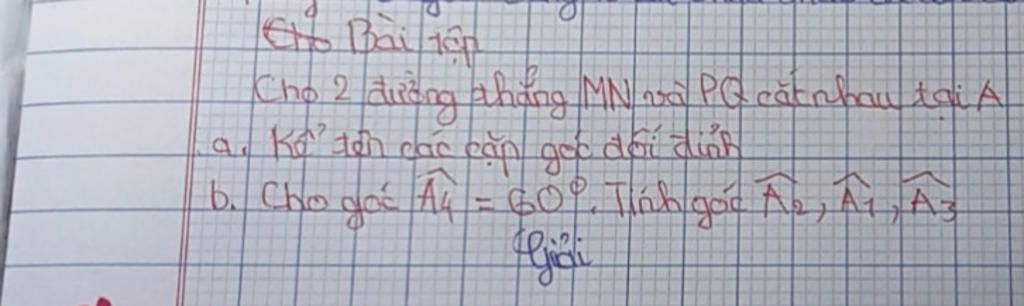 Bài tập
Cho 2 đường thẳng MN và PQ cắt nhau tại A
a. Kể tên các cặp góc đối đỉnh
b. Cho góc \(\widehat{A_4}\) = 60°. Tính góc \(\widehat{A_2}\), \(\widehat{A_1}\), \(\widehat{A_3}\)
Giải